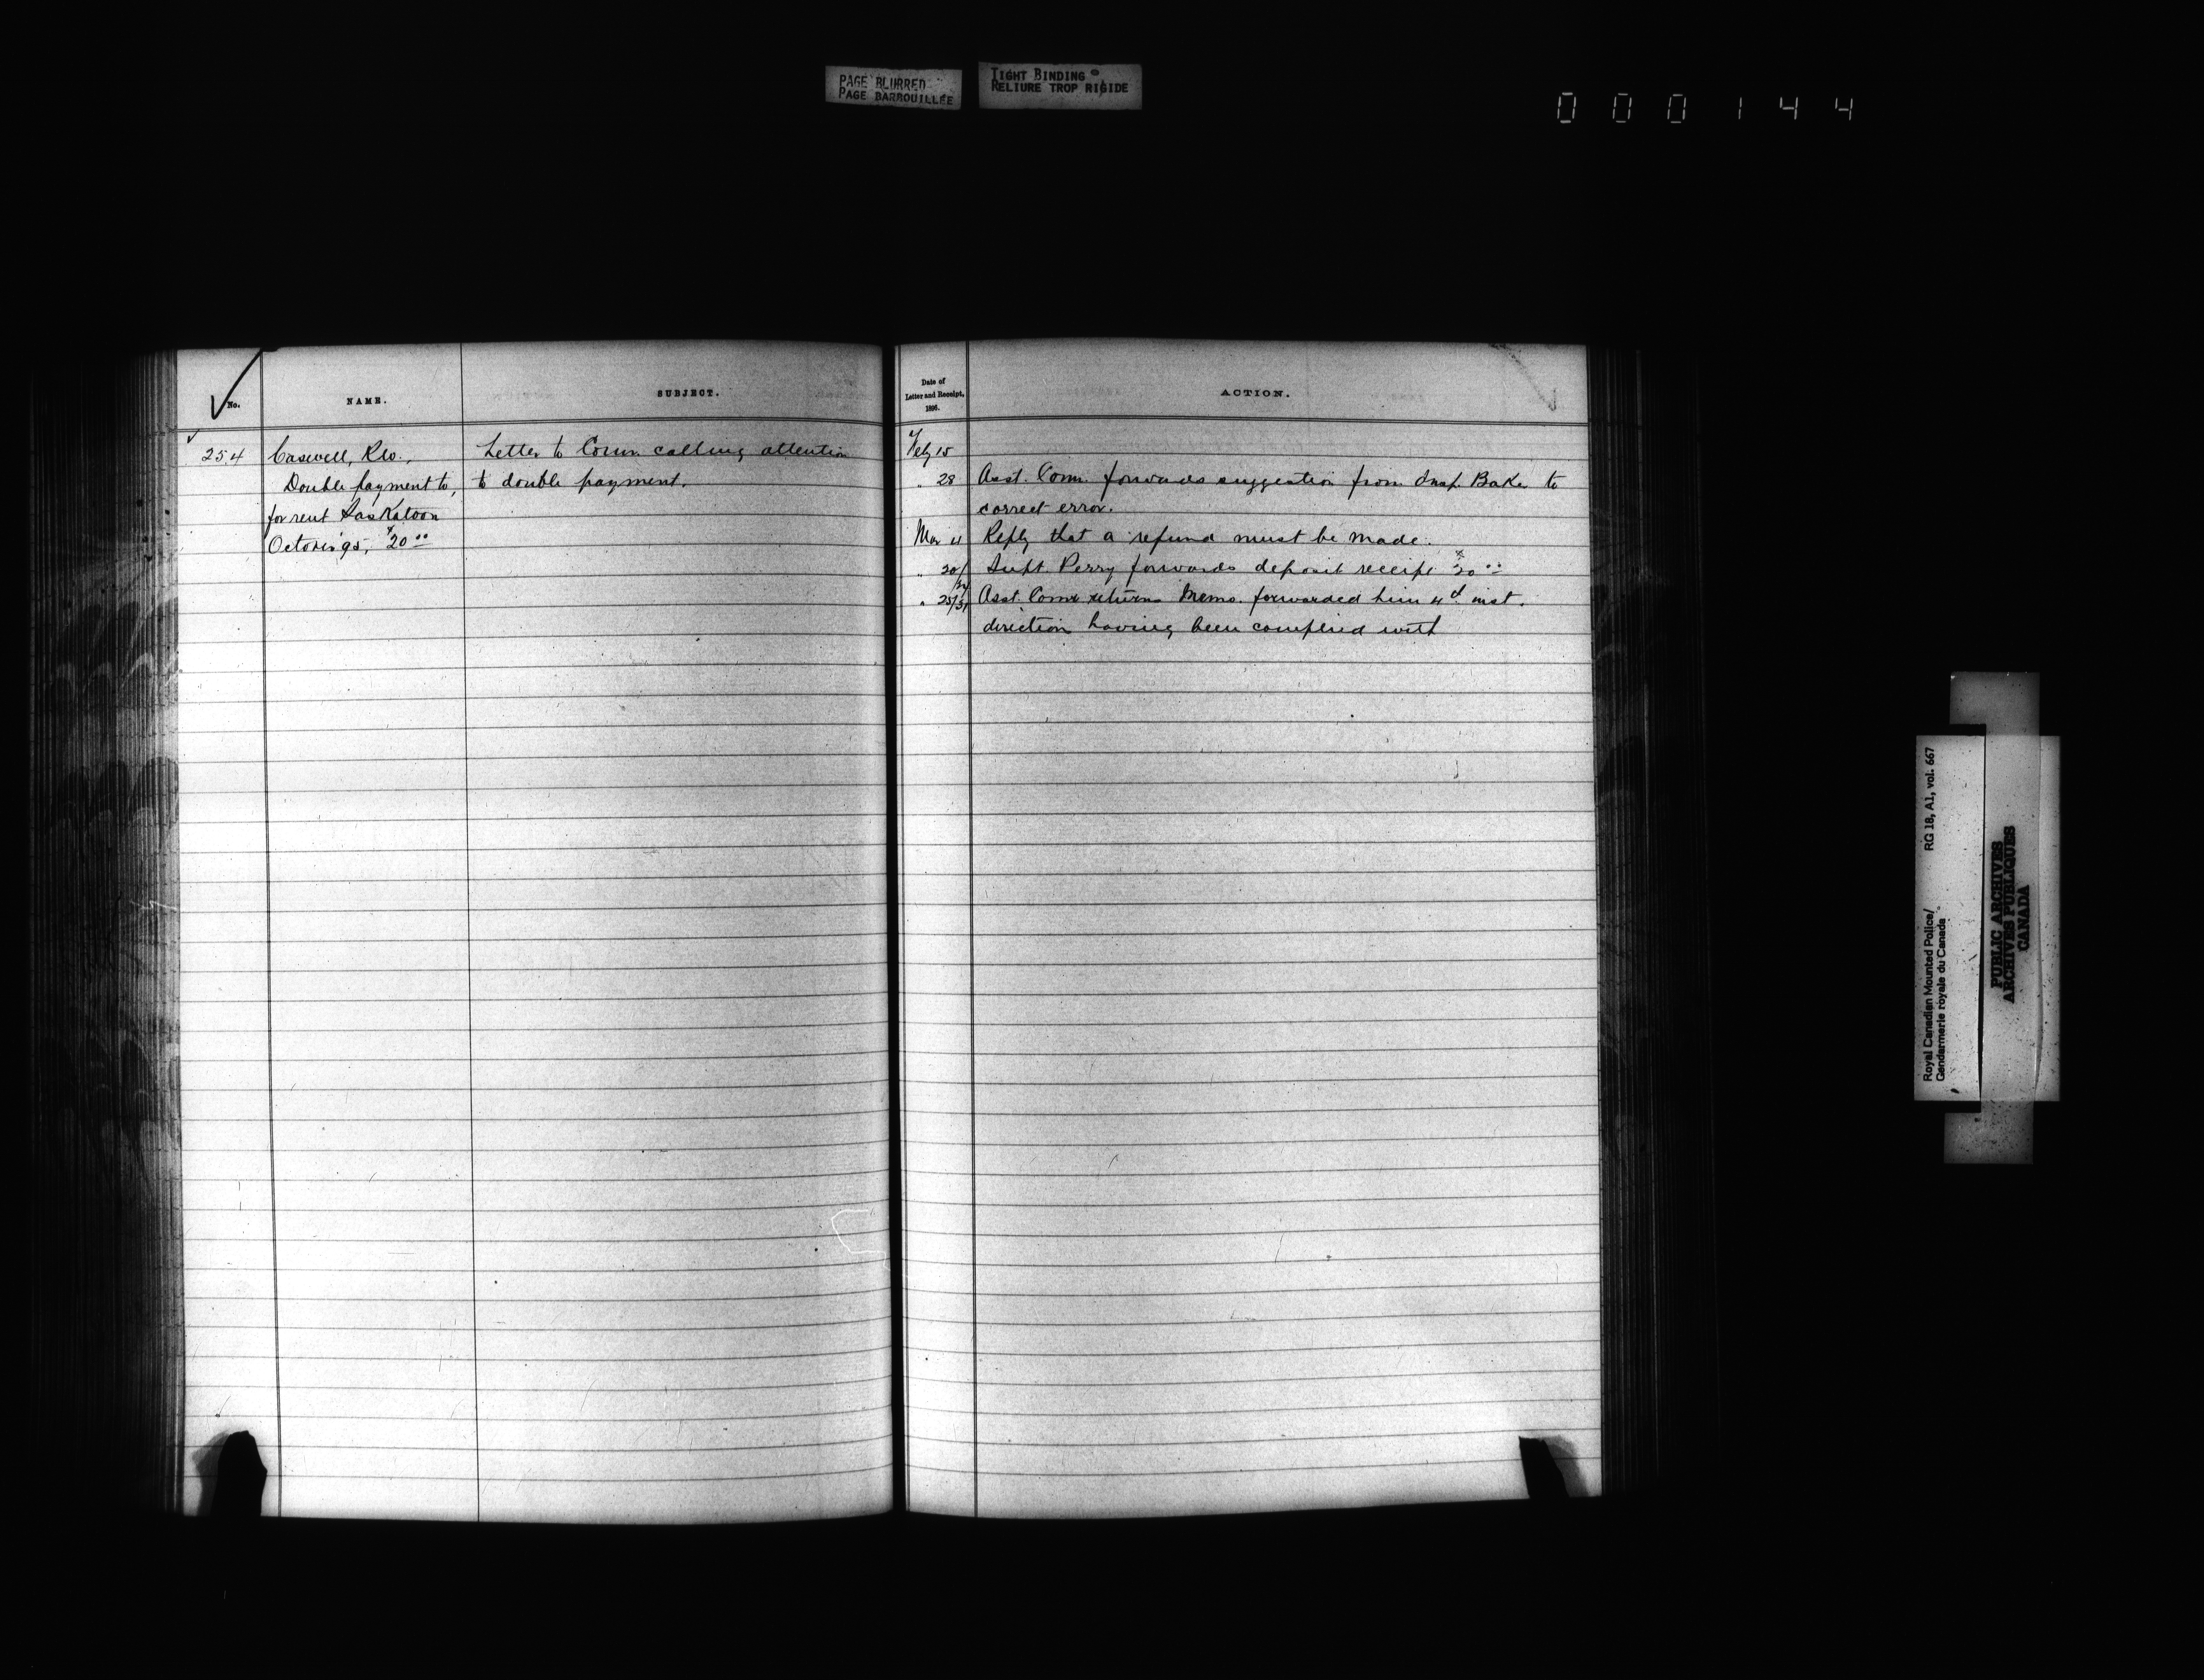 PAGE BLURRED
PAGE BARBOUILLÉE
TIGHT BINDING
RELIURE TROP RIGIDE
000144
No.
NAME.
SUBJECT.
Date of
Letter and Receipt,
1896.
ACTION.
254
Caswell,
Double payment to,
for rent Saskatoon
'95, $20.00
Letter to Comr. calling attention
to double payment.
Feby 15
" 28 Asst. Comr. forwards suggestion from Insp. Baker to
correct error.
Mar 4 Reply that a refund must be made.
" 20/ Supt. Perry forwards deposit receipt $20.00
" 25/31 Asst. Comr returns Memo. forwarded him 4th inst.
direction having been complied with
Royal Canadian Mounted Police/
Gendarmerie royale du Canada
RG 18, A1, vol. 667
PUBLIC ARCHIVES
ARCHIVES PUBLIQUES
CANADA